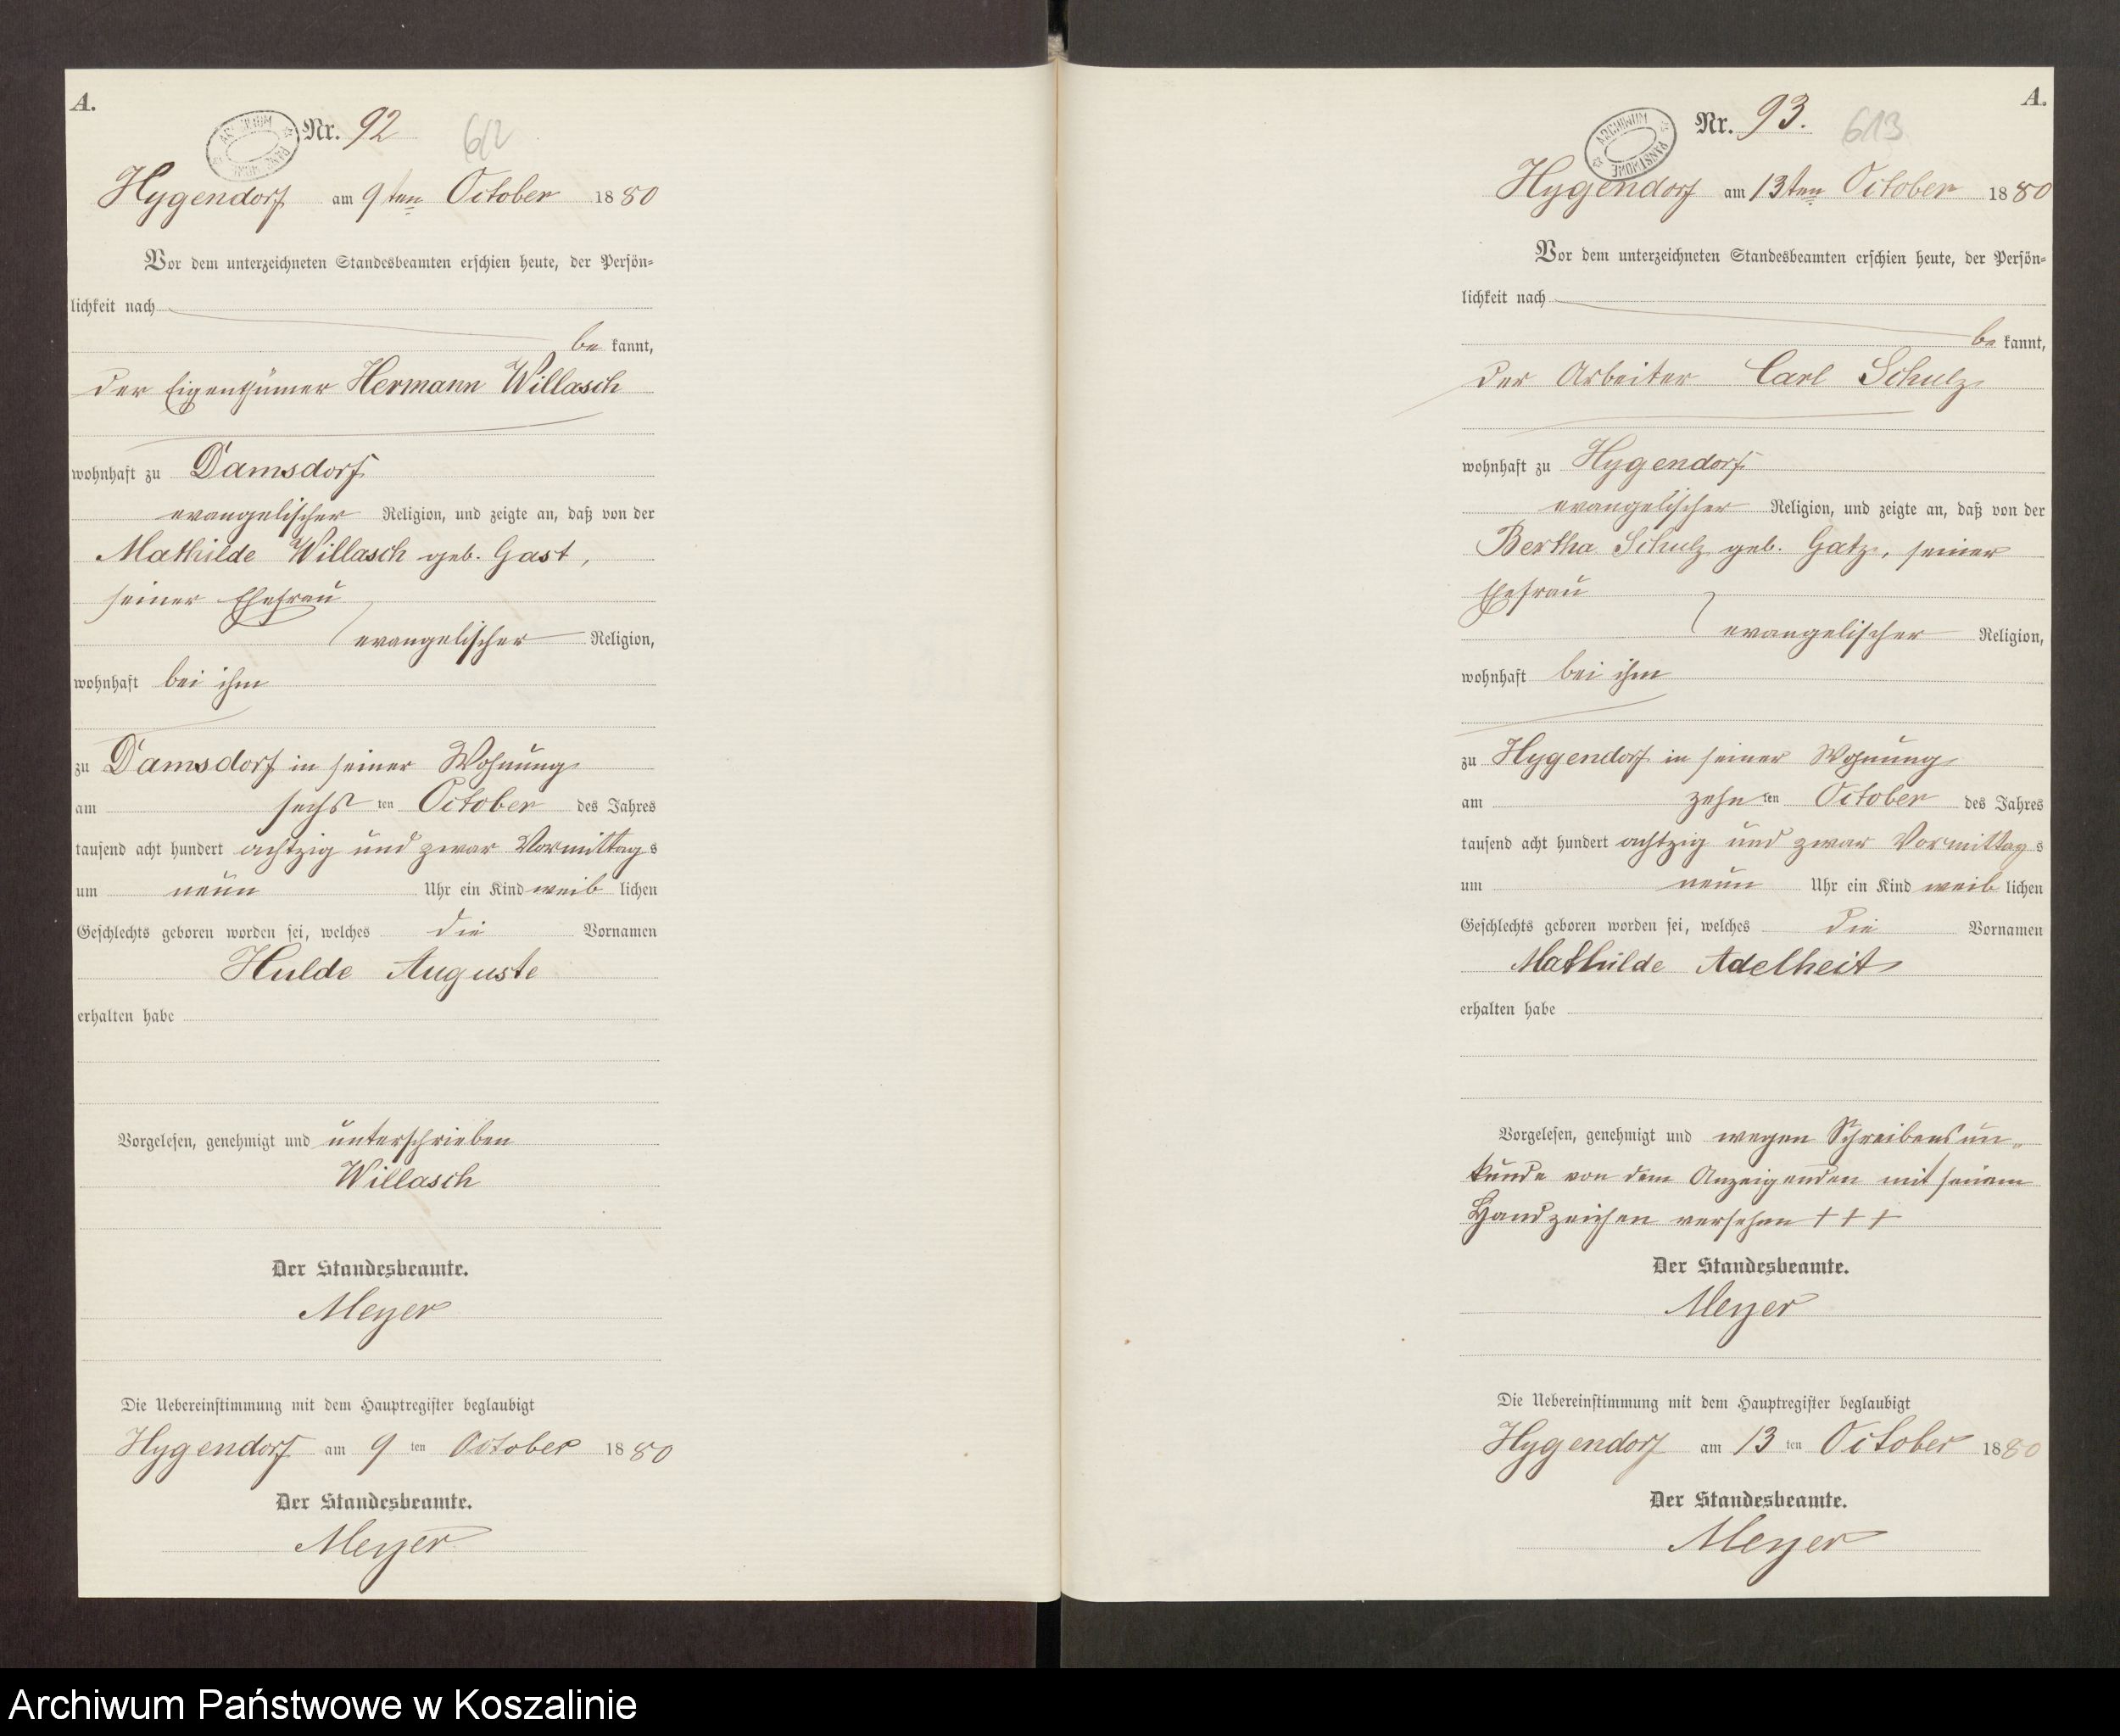 A.
Nr. 92
612
ARCHIWUM PAŃSTWOWE
Hygendorf am 9ten October 1880
Vor dem unterzeichneten Standesbeamten erschien heute, der Persön-
lichkeit nach
be kannt,
der Eigenthümer Hermann Willasch
wohnhaft zu Damsdorf
evangelischer Religion, und zeigte an, daß von der
Mathilde Willasch geb. Gast,
seiner Ehefrau
evangelischer Religion,
wohnhaft bei ihm
zu Damsdorf in seiner Wohnung
am sechs ten October des Jahres
tausend acht hundert achtzig und zwar Vormittag s
um neun Uhr ein Kind weib lichen
Geschlechts geboren worden sei, welches die Vornamen
Hulde Auguste
erhalten habe
Vorgelesen, genehmigt und unterschrieben
Willasch
Der Standesbeamte.
Meyer
Die Uebereinstimmung mit dem Hauptregister beglaubigt
Hygendorf am 9 ten October 1880
Der Standesbeamte.
Meyer
A.
Nr. 93.
613
ARCHIWUM PAŃSTWOWE
Hygendorf am 13ten October 1880
Vor dem unterzeichneten Standesbeamten erschien heute, der Persön-
lichkeit nach
be kannt,
der Arbeiter Carl Schulz
wohnhaft zu Hygendorf
evangelischer Religion, und zeigte an, daß von der
Bertha Schulz geb. Gatz, seiner
Ehefrau
evangelischer Religion,
wohnhaft bei ihm
zu Hygendorf in seiner Wohnung
am zehn ten October des Jahres
tausend acht hundert achtzig und zwar Vormittag s
um neun Uhr ein Kind weib lichen
Geschlechts geboren worden sei, welches die Vornamen
Mathilde Adelheit
erhalten habe
Vorgelesen, genehmigt und wegen Schreibensun-
kunde von dem Anzeigenden mit seinem
Handzeichen versehen +++
Der Standesbeamte.
Meyer
Die Uebereinstimmung mit dem Hauptregister beglaubigt
Hygendorf am 13 ten October 1880
Der Standesbeamte.
Meyer
Archiwum Państwowe w Koszalinie